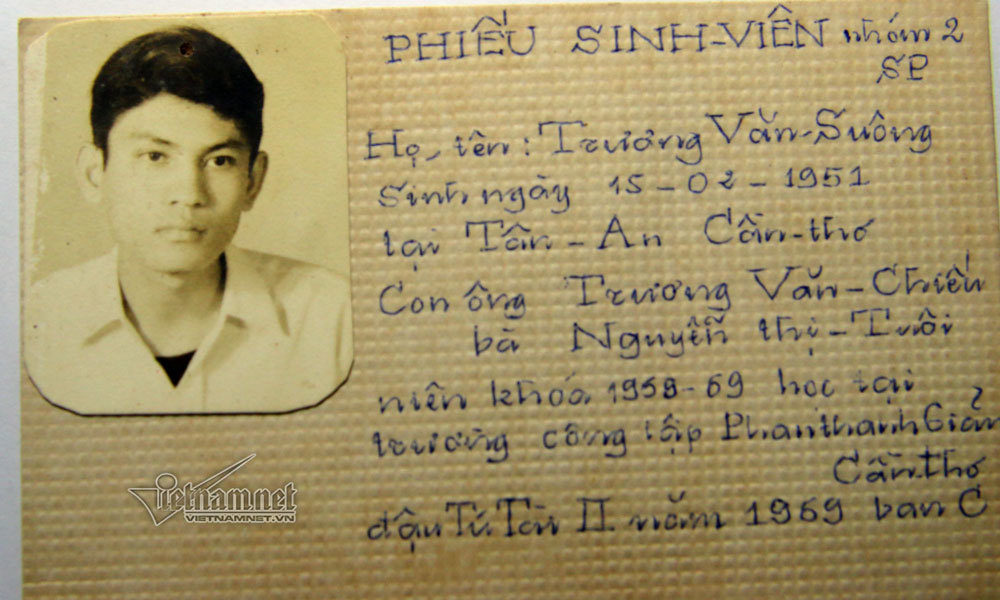 PHIẾU SINH-VIÊN nhóm 2
SP
Họ, tên : Trương Văn-Suông
Sinh ngày 15-02-1951
tại Tân-An Cần-thơ
Con ông Trương Văn-Chiếu
bà Nguyễn thị-Tươi
niên khóa 1958-69 học tại
trường công lập PhanthanhGiản
Cần-thơ
đậu Tú Tài II năm 1969 ban C
Vietnam.net
VIETNAMNET.VN